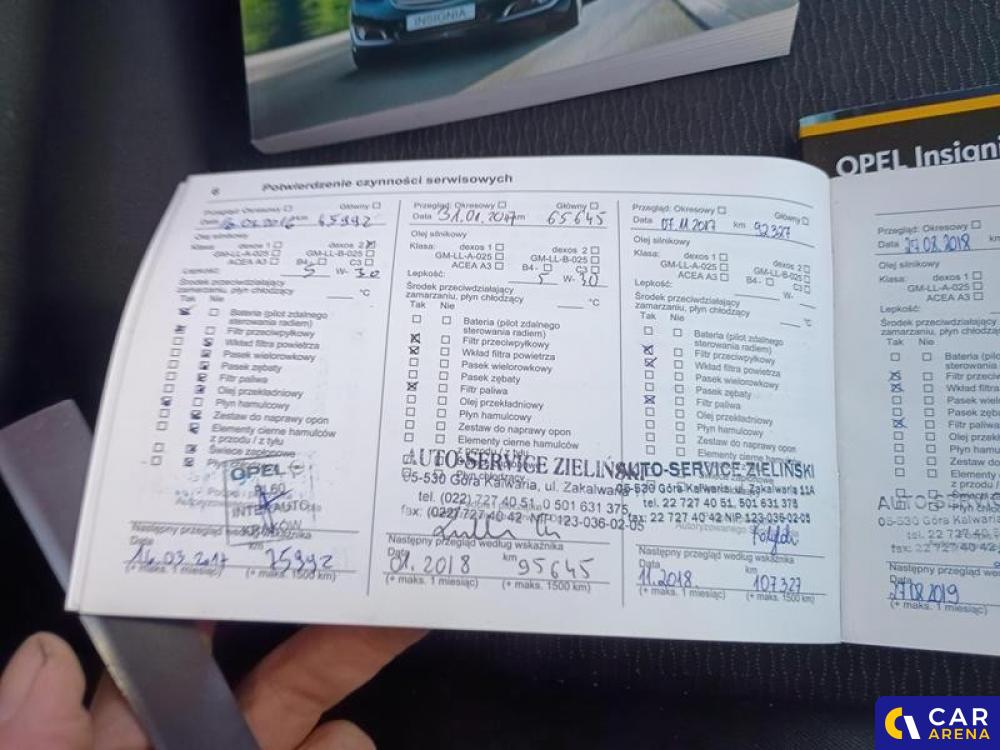 INSIGNIA
OPEL Insigni
6 Potwierdzenie czynności serwisowych
Przegląd: Okresowy Główny
Data km 65992
Olej silnikowy
Klasa: dexos 1 dexos 2
GM-LL-A-025 GM-LL-B-025
ACEA A3 B4- C3
Lepkość: 5 W- 30
Środek przeciwdziałający
zamarzaniu, płyn chłodzący °C
Tak Nie
Bateria (pilot zdalnego
sterowania radiem)
Filtr przeciwpyłkowy
Wkład filtra powietrza
Pasek wielorowkowy
Pasek zębaty
Filtr paliwa
Olej przekładniowy
Płyn hamulcowy
Zestaw do naprawy opon
Elementy cierne hamulców
z przodu / z tyłu
Świece zapłonowe
OPEL
Następny przegląd według wskaźnika
Data km
16.03.2017 75992
(+ maks. 1 miesiąc) (+ maks. 1500 km)
Przegląd: Okresowy Główny
Data 31.01.2017 km 65645
Olej silnikowy
Klasa: dexos 1 dexos 2
GM-LL-A-025 GM-LL-B-025
ACEA A3 B4- C3
Lepkość: 5 W- 30
Środek przeciwdziałający
zamarzaniu, płyn chłodzący °C
Tak Nie
Bateria (pilot zdalnego
sterowania radiem)
Filtr przeciwpyłkowy
Wkład filtra powietrza
Pasek wielorowkowy
Pasek zębaty
Filtr paliwa
Olej przekładniowy
Płyn hamulcowy
Zestaw do naprawy opon
Elementy cierne hamulców
z przodu / z tyłu
AUTO-SERVICE ZIELIŃSKI
05-530 Góra Kalwaria, ul. Zakalwaria
tel. (022) 727 40 51, 0 501 631 375
fax: (022) 727 40 42 NIP 123-036-02-05
Następny przegląd według wskaźnika
Data km
01.2018 95645
(+ maks. 1 miesiąc) (+ maks. 1500 km)
Przegląd: Okresowy Główny
Data 07.11.2017 km 92327
Olej silnikowy
Klasa: dexos 1 dexos 2
GM-LL-A-025 GM-LL-B-025
ACEA A3 B4- C3
Lepkość: W-
Środek przeciwdziałający
zamarzaniu, płyn chłodzący °C
Tak Nie
Bateria (pilot zdalnego
sterowania radiem)
Filtr przeciwpyłkowy
Wkład filtra powietrza
Pasek wielorowkowy
Pasek zębaty
Filtr paliwa
Olej przekładniowy
Płyn hamulcowy
Zestaw do naprawy opon
Elementy cierne hamulców
AUTO-SERVICE-ZIELIŃSKI
05-530 Góra Kalwaria, ul. Zakalwaria 11A
tel. 22 727 40 51, 501 631 375
fax: 22 727 40 42 NIP 123-036-02-05
Następny przegląd według wskaźnika
Data km
11.2018 107327
(+ maks. 1 miesiąc) (+ maks. 1500 km)
Przegląd: Okresowy
Data 27.08.2018 km
Olej silnikowy
Klasa: dexos 1
GM-LL-A-025
ACEA A3
Lepkość:
Środek przeciwdziałający
zamarzaniu, płyn chłodzący
Tak Nie
Bateria (pilot
sterowania
Filtr przeciw
Wkład filtra
Pasek wiel
Pasek zęb
Filtr paliwa
Olej przek
Płyn hamu
Zestaw do
Elementy
z przodu /
05-530 Góra Kalwaria
tel. 22 727 40
fax: 22 727 40 42
Następny przegląd według
Data
27.08.2019
(+ maks. 1 miesiąc)
CAR
ARENA